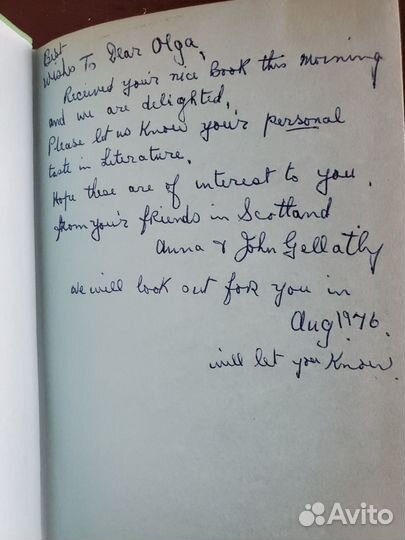 Best
Wishes To Dear Olga,
Received your nice Book this morning
and we are delighted,
Please let us Know you'r personal
taste in Literature,
Hope these are of interest to you,
from you'r friends in Scotland
Anna & John Gellatly
we will look out for you in
Aug 1976.
will let you Know
Avito